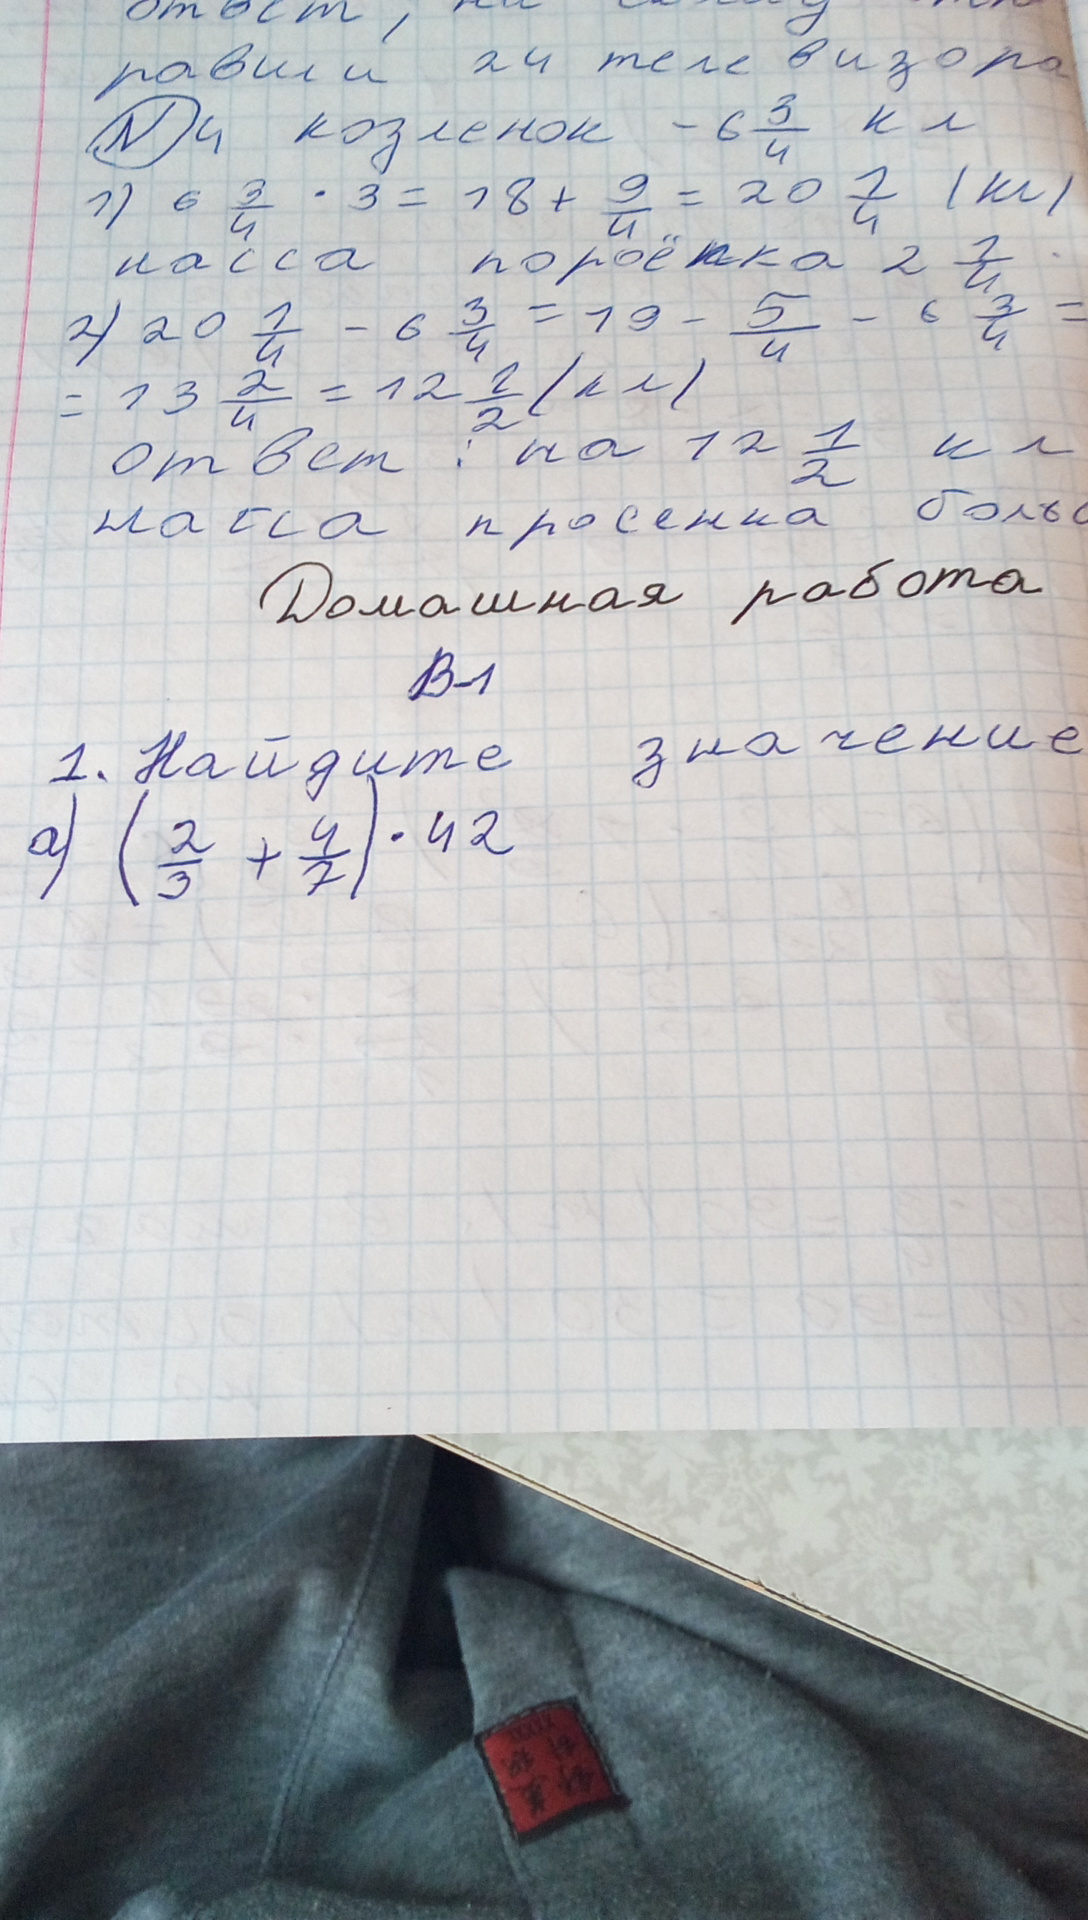 равили 24 телевизора
N 4 козленок - 6 3/4 кл
1) 6 3/4 · 3 = 18 + 9/4 = 20 1/4 (кг)
масса пороёнка 2 1/4
2) 20 1/4 - 6 3/4 = 19 - 5/4 - 6 3/4 =
= 13 2/4 = 12 1/2 (кл)
ответ : на 12 1/2 кл
масса просенка боль
Домашная работа
В-1
1. Найдите значение
а) (2/3 + 4/7) · 42